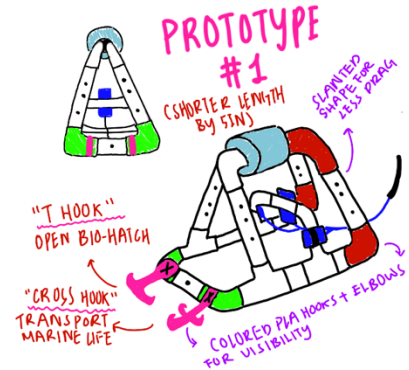 PROTOTYPE
#1
(SHORTER LENGTH
BY 5IN)
SLANTED
SHAPE FOR
LESS DRAG
"T HOOK"
OPEN BIO-HATCH
"CROSS HOOK"
TRANSPORT
MARINE LIFE
COLORED PLA HOOKS + ELBOWS
FOR VISIBILITY